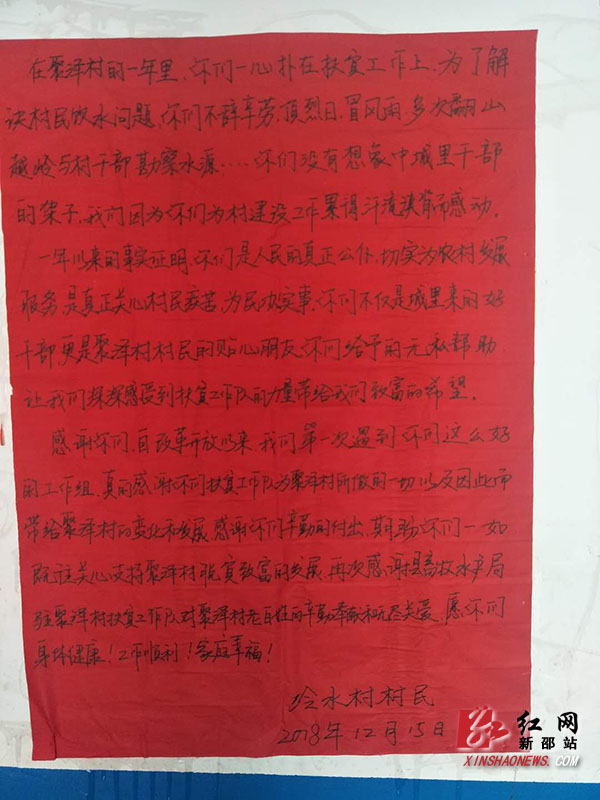 在聚泽村的一年里，你们一心扑在扶贫工作上，为了解
决村民饮水问题，你们不辞辛劳，顶烈日，冒风雨，多次翻山
越岭与村干部勘察水源……你们没有想象中城里干部
的架子，我们因为你们为村建设工作累得汗流浃背而感动。
一年以来的事实证明，你们是人民的真正公仆，切实为农村发展
服务，是真正关心村民疾苦，为民办实事，你们不仅是城里来的好
干部更是聚泽村村民的贴心朋友，你们给予的无私帮助
让我们深深感受到扶贫工作队的力量带给我们致富的希望。
感谢你们，自改革开放以来，我们第一次遇到你们这么好
的工作组，真的感谢你们扶贫工作队为聚泽村所做的一切以及因此而
带给聚泽村的变化和发展，感谢你们辛勤的付出，期盼你们一如
既往关心支持聚泽村脱贫致富的发展，再次感谢县畜牧水产局
驻聚泽村扶贫工作队对聚泽村老百姓的辛勤奉献和无尽关爱，愿你们
身体健康！工作顺利！家庭幸福！
水村村民
2018年12月15日
红网
新邵站
XINSHAONEWS.COM